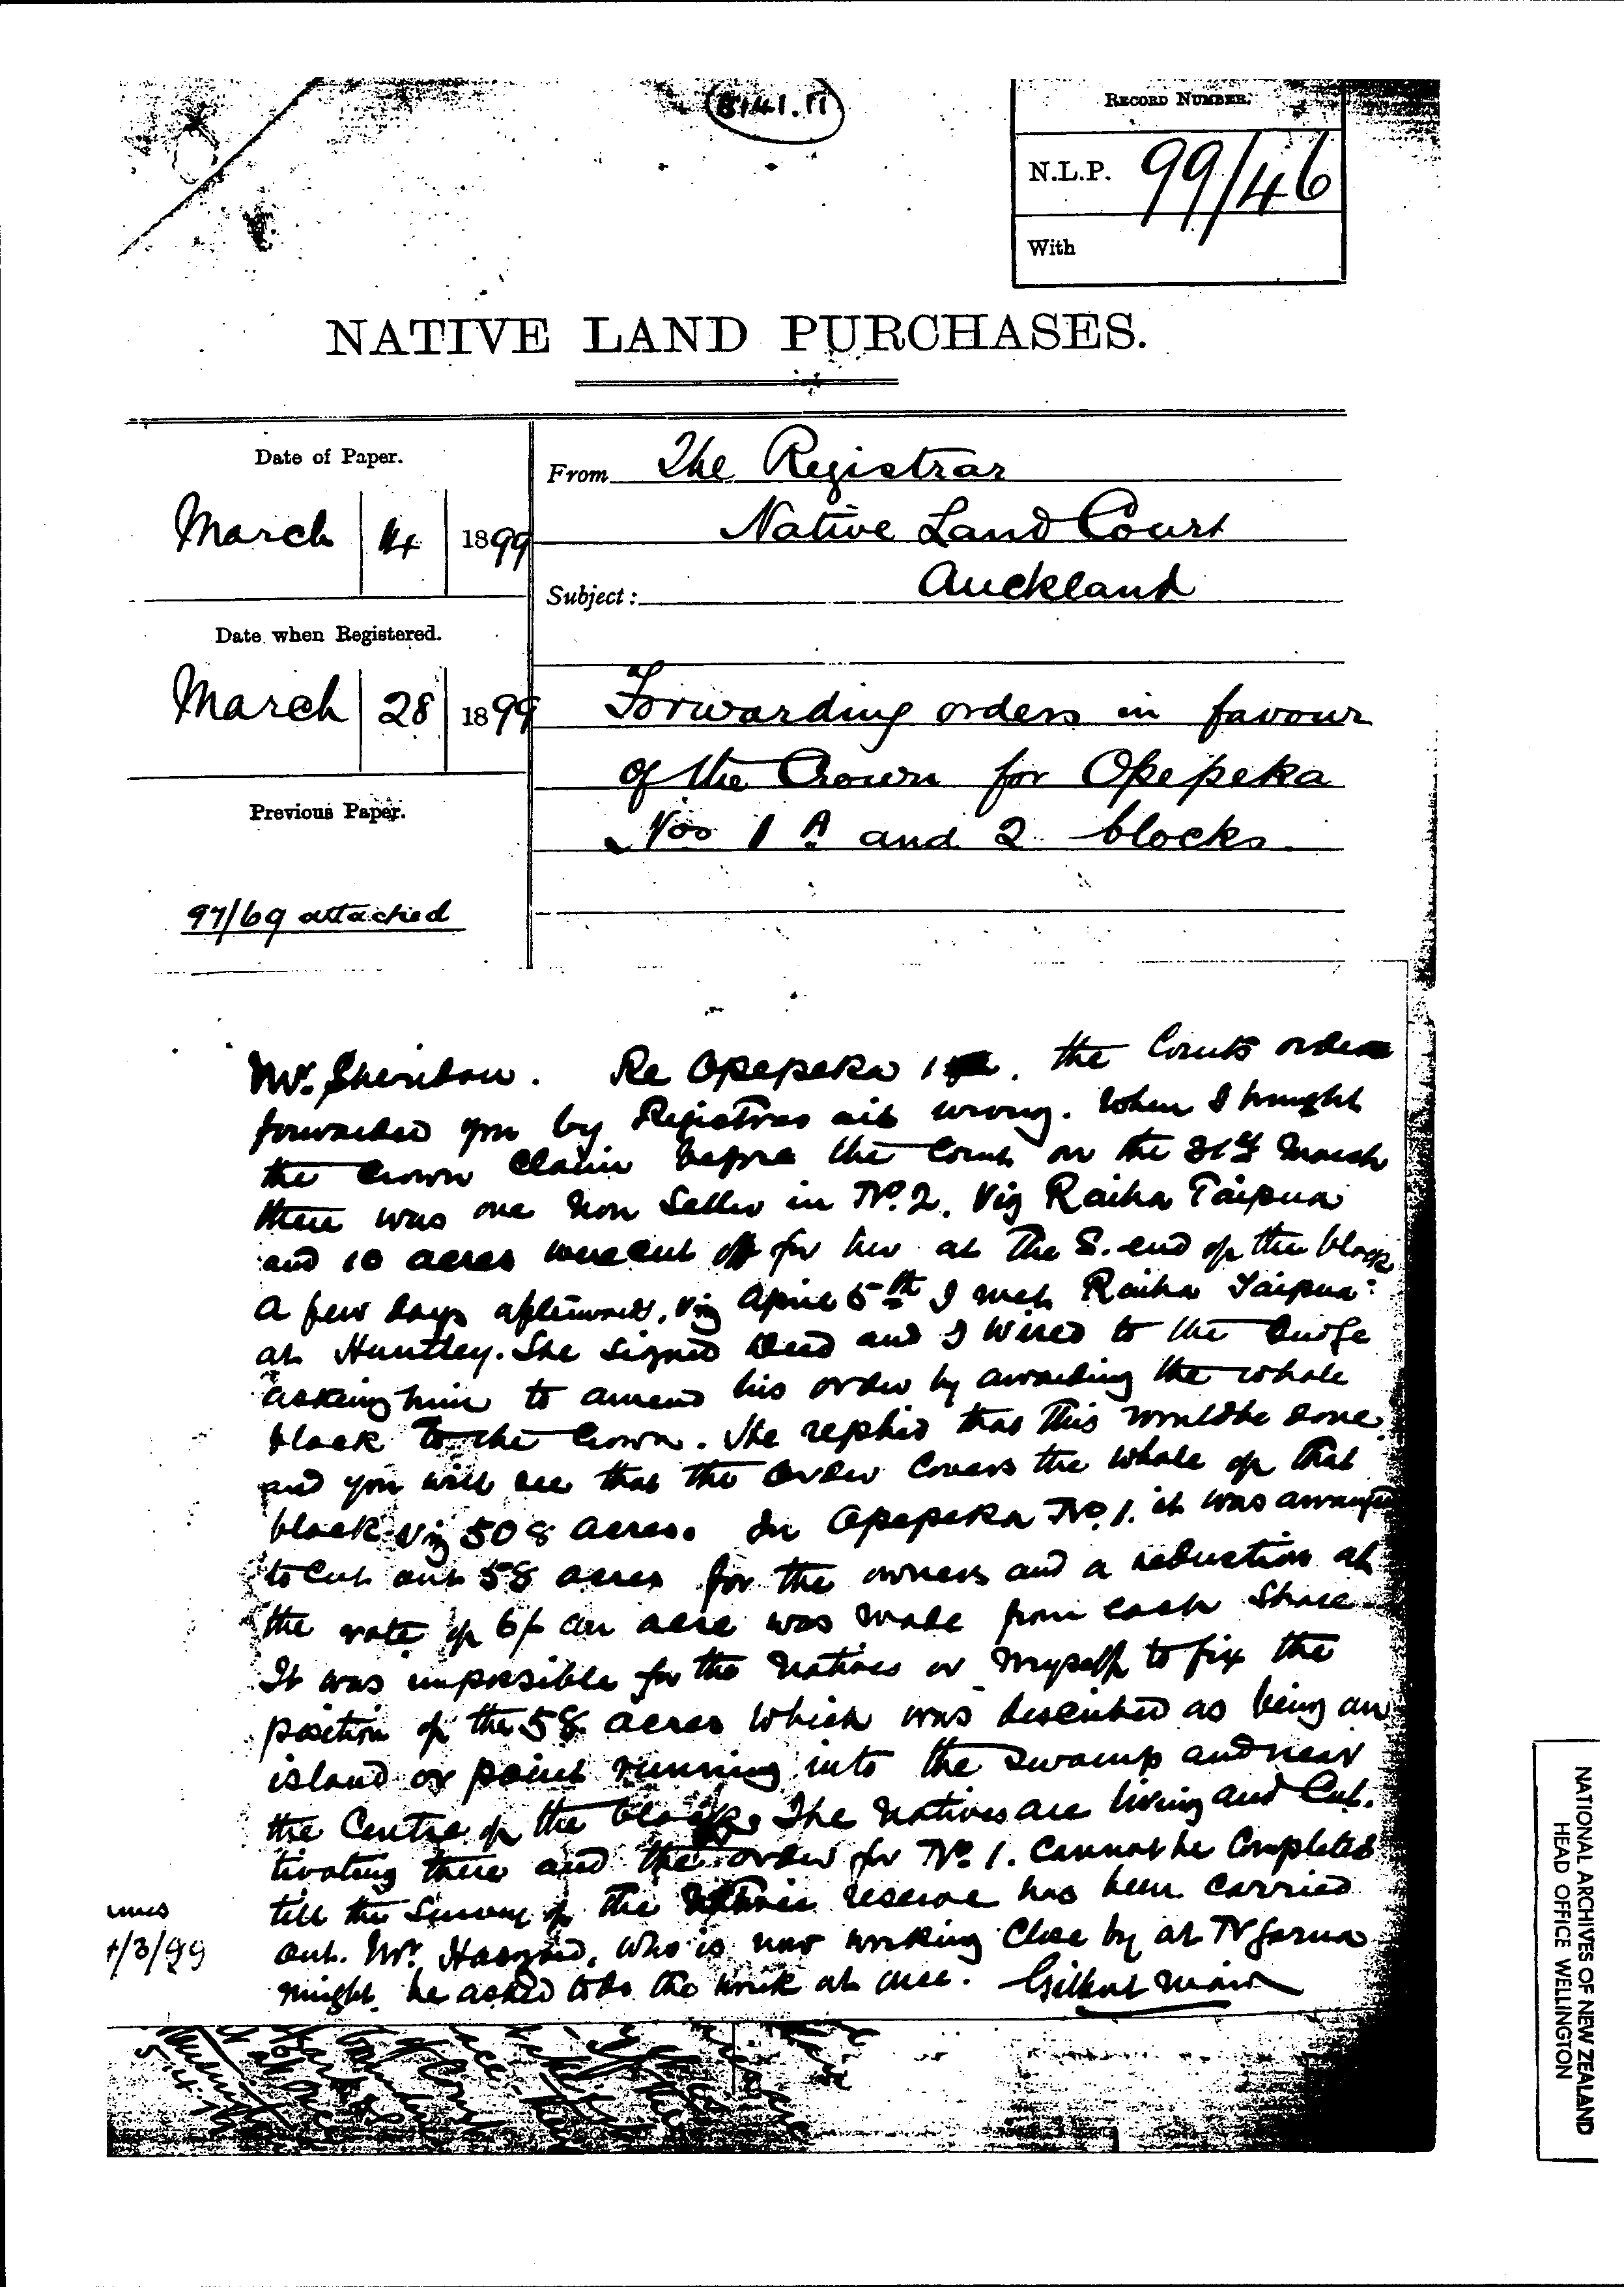 RECORD NUMBER.
N.L.P. 99/46
With
NATIVE LAND PURCHASES.
Date of Paper.
March 14 1899
Date when Registered.
March 28 1899
Previous Paper.
97/69 attached
From The Registrar
Native Land Court
Subject: Auckland
Forwarding orders in favour
of the Crown for Opepeka
Nos 1A and 2 blocks
Mr. Sheridan. Re Opepeka 1 the Courts orders
forwarded you by Registrar are wrong. When I brought
the Crown Claim before the Court on the 31st March
there was one Non Seller in No. 2. Viz Raiha Taipua
and 10 acres were cut off for her at the S. end of the block
A few days afterwards, viz April 5th I met Raiha Taipua
at Huntley. She signed Deed and I wired to the Judge
asking him to amend his order by awarding the whole
block to the Crown. He replied that this would be done
and you will see that the Order Covers the whole of that
block viz 508 acres. In Opepeka No. 1. it was arranged
to cut out 58 acres for the owners and a reduction at
the rate of 6/- an acre was made from each share
It was impossible for the Natives or myself to fix the
position of the 58 acres which was described as being an
island or point running into the swamp and near
the Centre of the block. The Natives are living and Cul-
tivating there and the order for No. 1. Cannot be Completed
till the Survey of the reserve has been carried
out. Mr. who is now working close by at Ngarua
might be asked to do the work at once. Gilbert Mair
/3/99
NATIONAL ARCHIVES OF NEW ZEALAND
HEAD OFFICE WELLINGTON